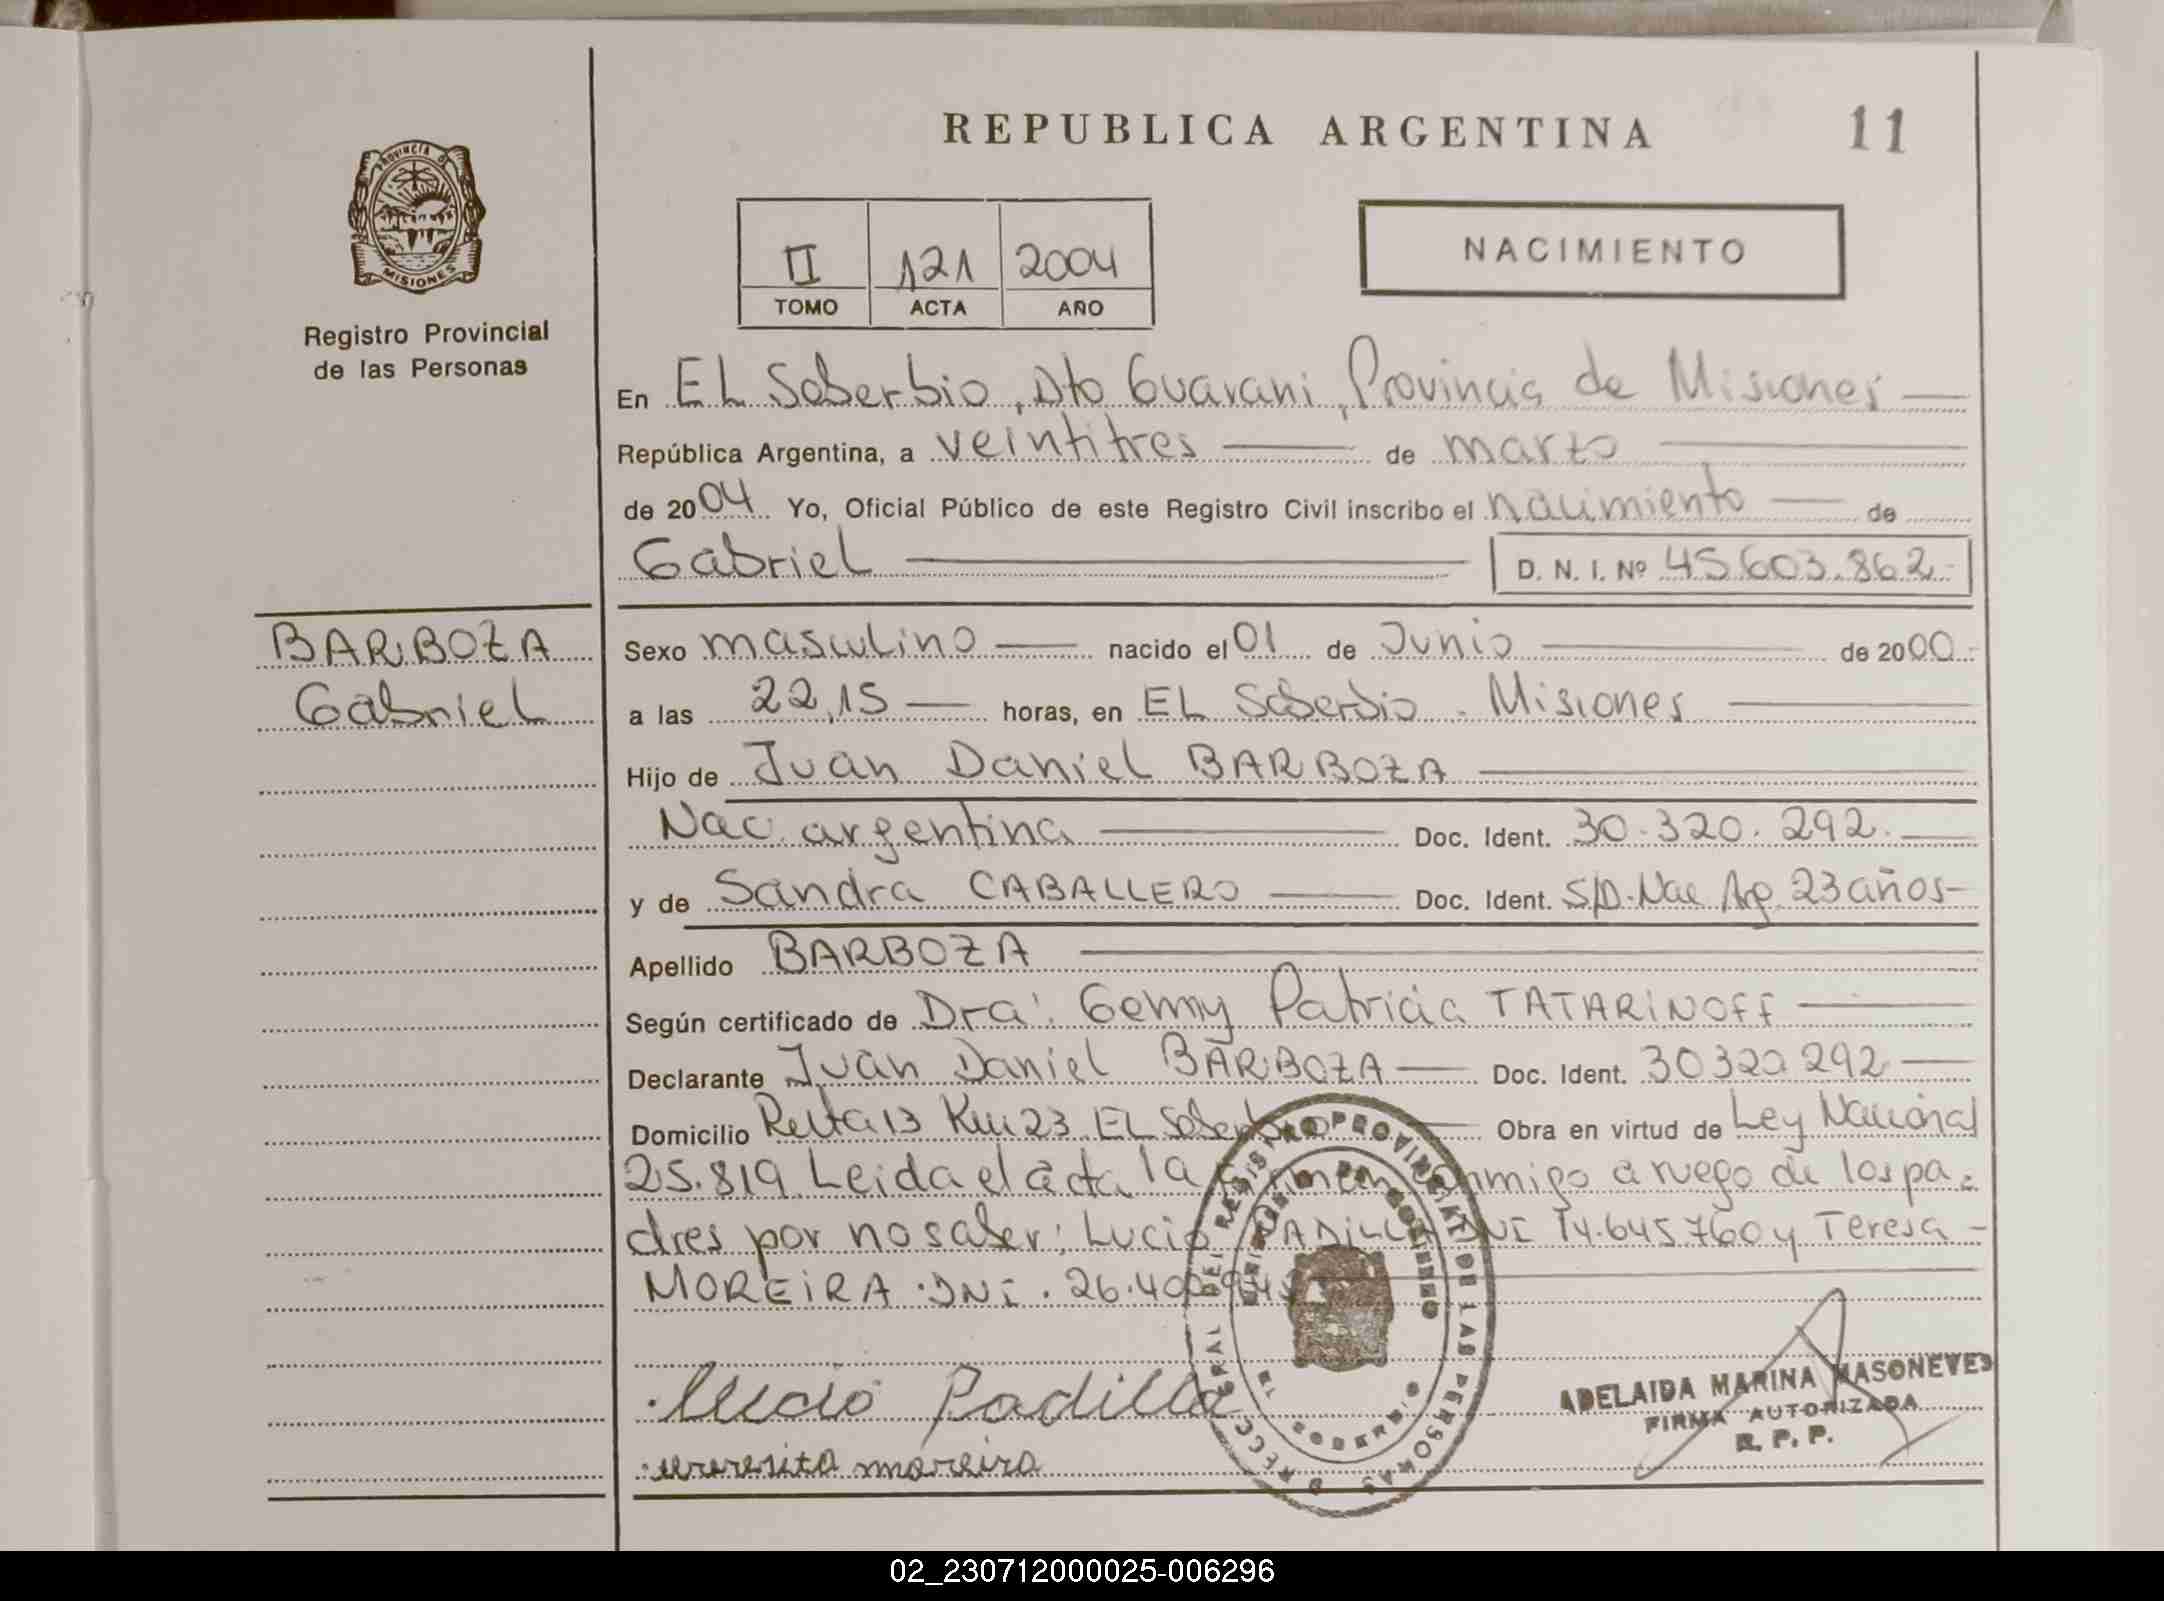 REPUBLICA ARGENTINA
11
PROVINCIA DE
MISIONES
Registro Provincial
de las Personas
II 121 2004
TOMO ACTA AÑO
NACIMIENTO
En EL Soberbio, Dto Guarani, Provincia de Misiones
República Argentina, a veintitres de marzo
de 2004 Yo, Oficial Público de este Registro Civil inscribo el nacimiento de
Gabriel D. N. I. Nº 45.603.862
BARBOZA
Gabriel
Sexo masculino nacido el 01 de Junio de 2000
a las 22,15 horas, en EL Soberbio - Misiones
Hijo de Juan Daniel BARBOZA
Nac. argentina Doc. Ident. 30.320.292
y de Sandra CABALLERO Doc. Ident. S/D. Nac Arg. 23 años
Apellido BARBOZA
Según certificado de Dra: Patricia TATARINOFF
Declarante Juan Daniel BARBOZA Doc. Ident. 30320292
Domicilio Ruta 13 Km 23 EL Soberbio Obra en virtud de Ley Nacional
25.819. Leida el acta la firman conmigo a ruego de los pa-
dres por no saber: Lucio PADILLA DNI 14.645.760 y Teresa
MOREIRA. DNI. 26.400
Lucio Padilla
moreira
DIRECC. GRAL DEL REGISTRO PROVINCIAL DE LAS PERSONAS
EL SOBERBIO
ADELAIDA MARINA MASONEVES
FIRMA AUTORIZADA
R. P. P.
02_230712000025-006296